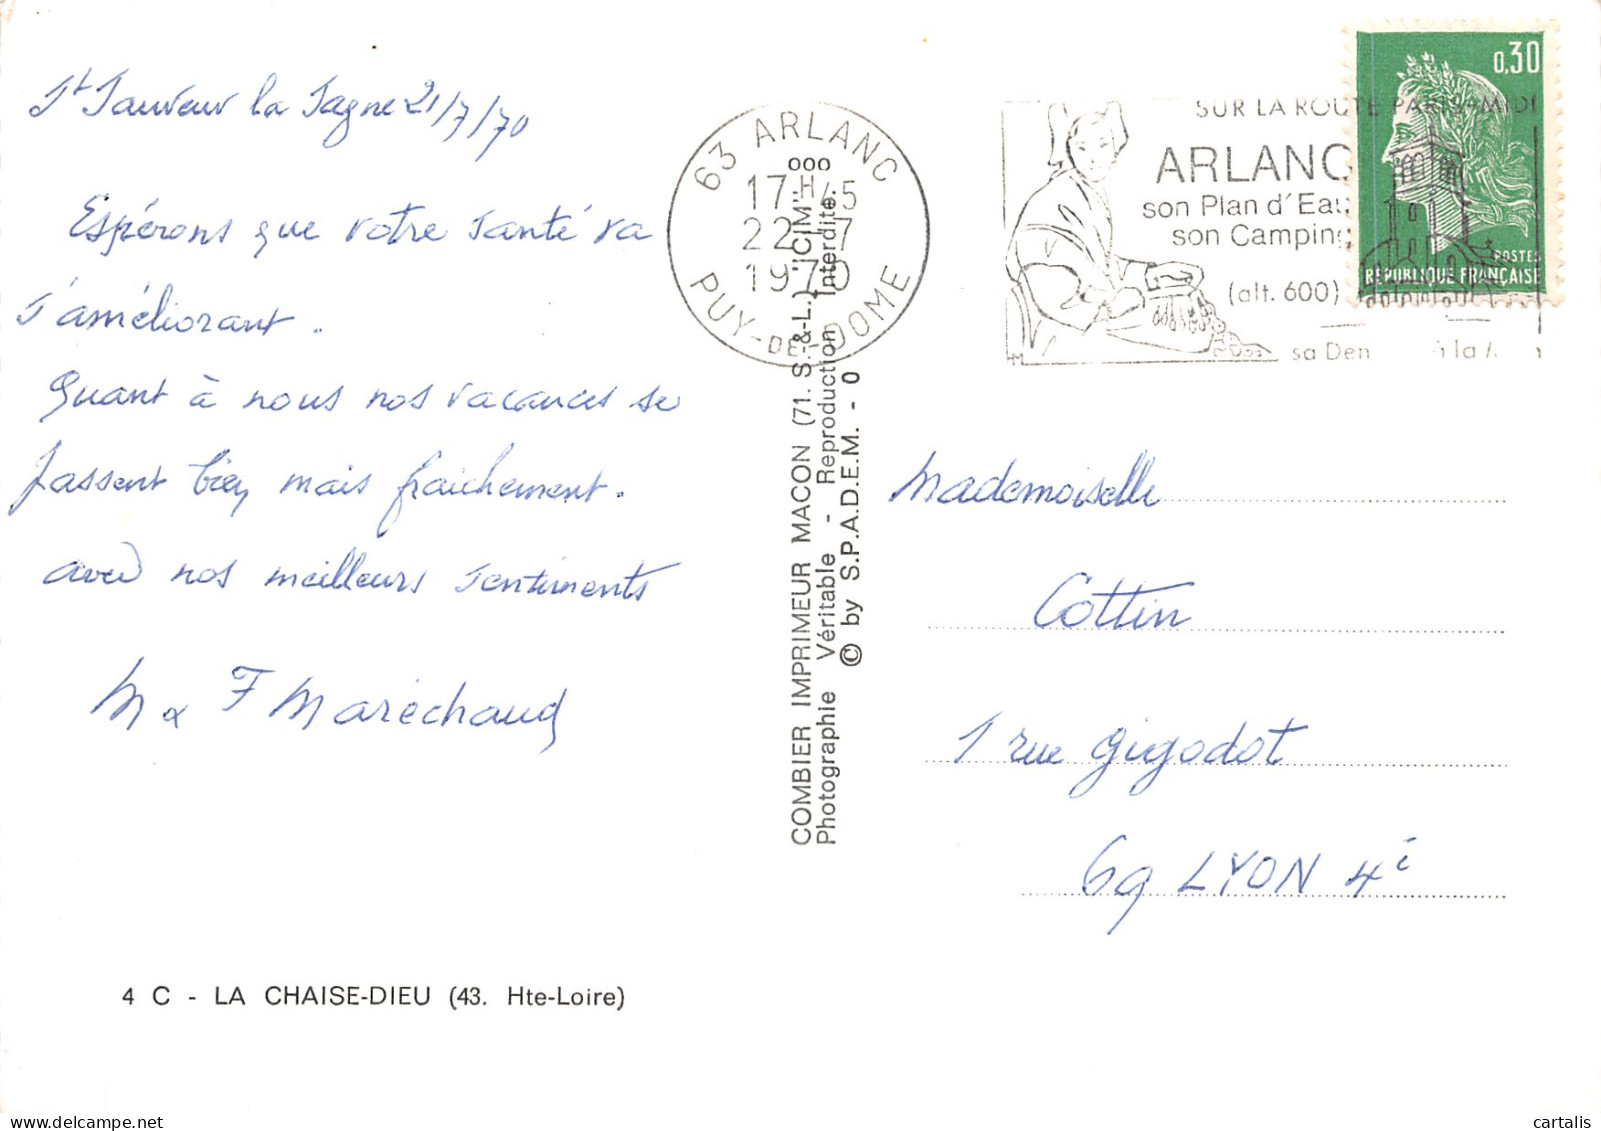 St Sauveur la Sagne 21/7/70
Espérons que votre santé va
s'améliorant.
Quant à nous nos vacances se
passent bien mais fraichement.
avec nos meilleurs sentiments
M & F Maréchaud
4 C - LA CHAISE-DIEU (43. Hte-Loire)
COMBIER IMPRIMEUR MACON (71. S.-&-L.) "CIM"
Photographie Véritable - Reproduction Interdite
© by S.P.A.D.E.M. - 0
63 ARLANC
000
17 H 45
22 - 7
1970
PUY-DE-DOME
SUR LA ROUTE PARIS-MIDI
ARLANC
son Plan d'Eau
son Camping
(alt. 600)
sa Den à la
0,30
POSTES
RÉPUBLIQUE FRANÇAISE
Mademoiselle
Cottin
1 rue Gigodot
69 LYON 4e
cartalis